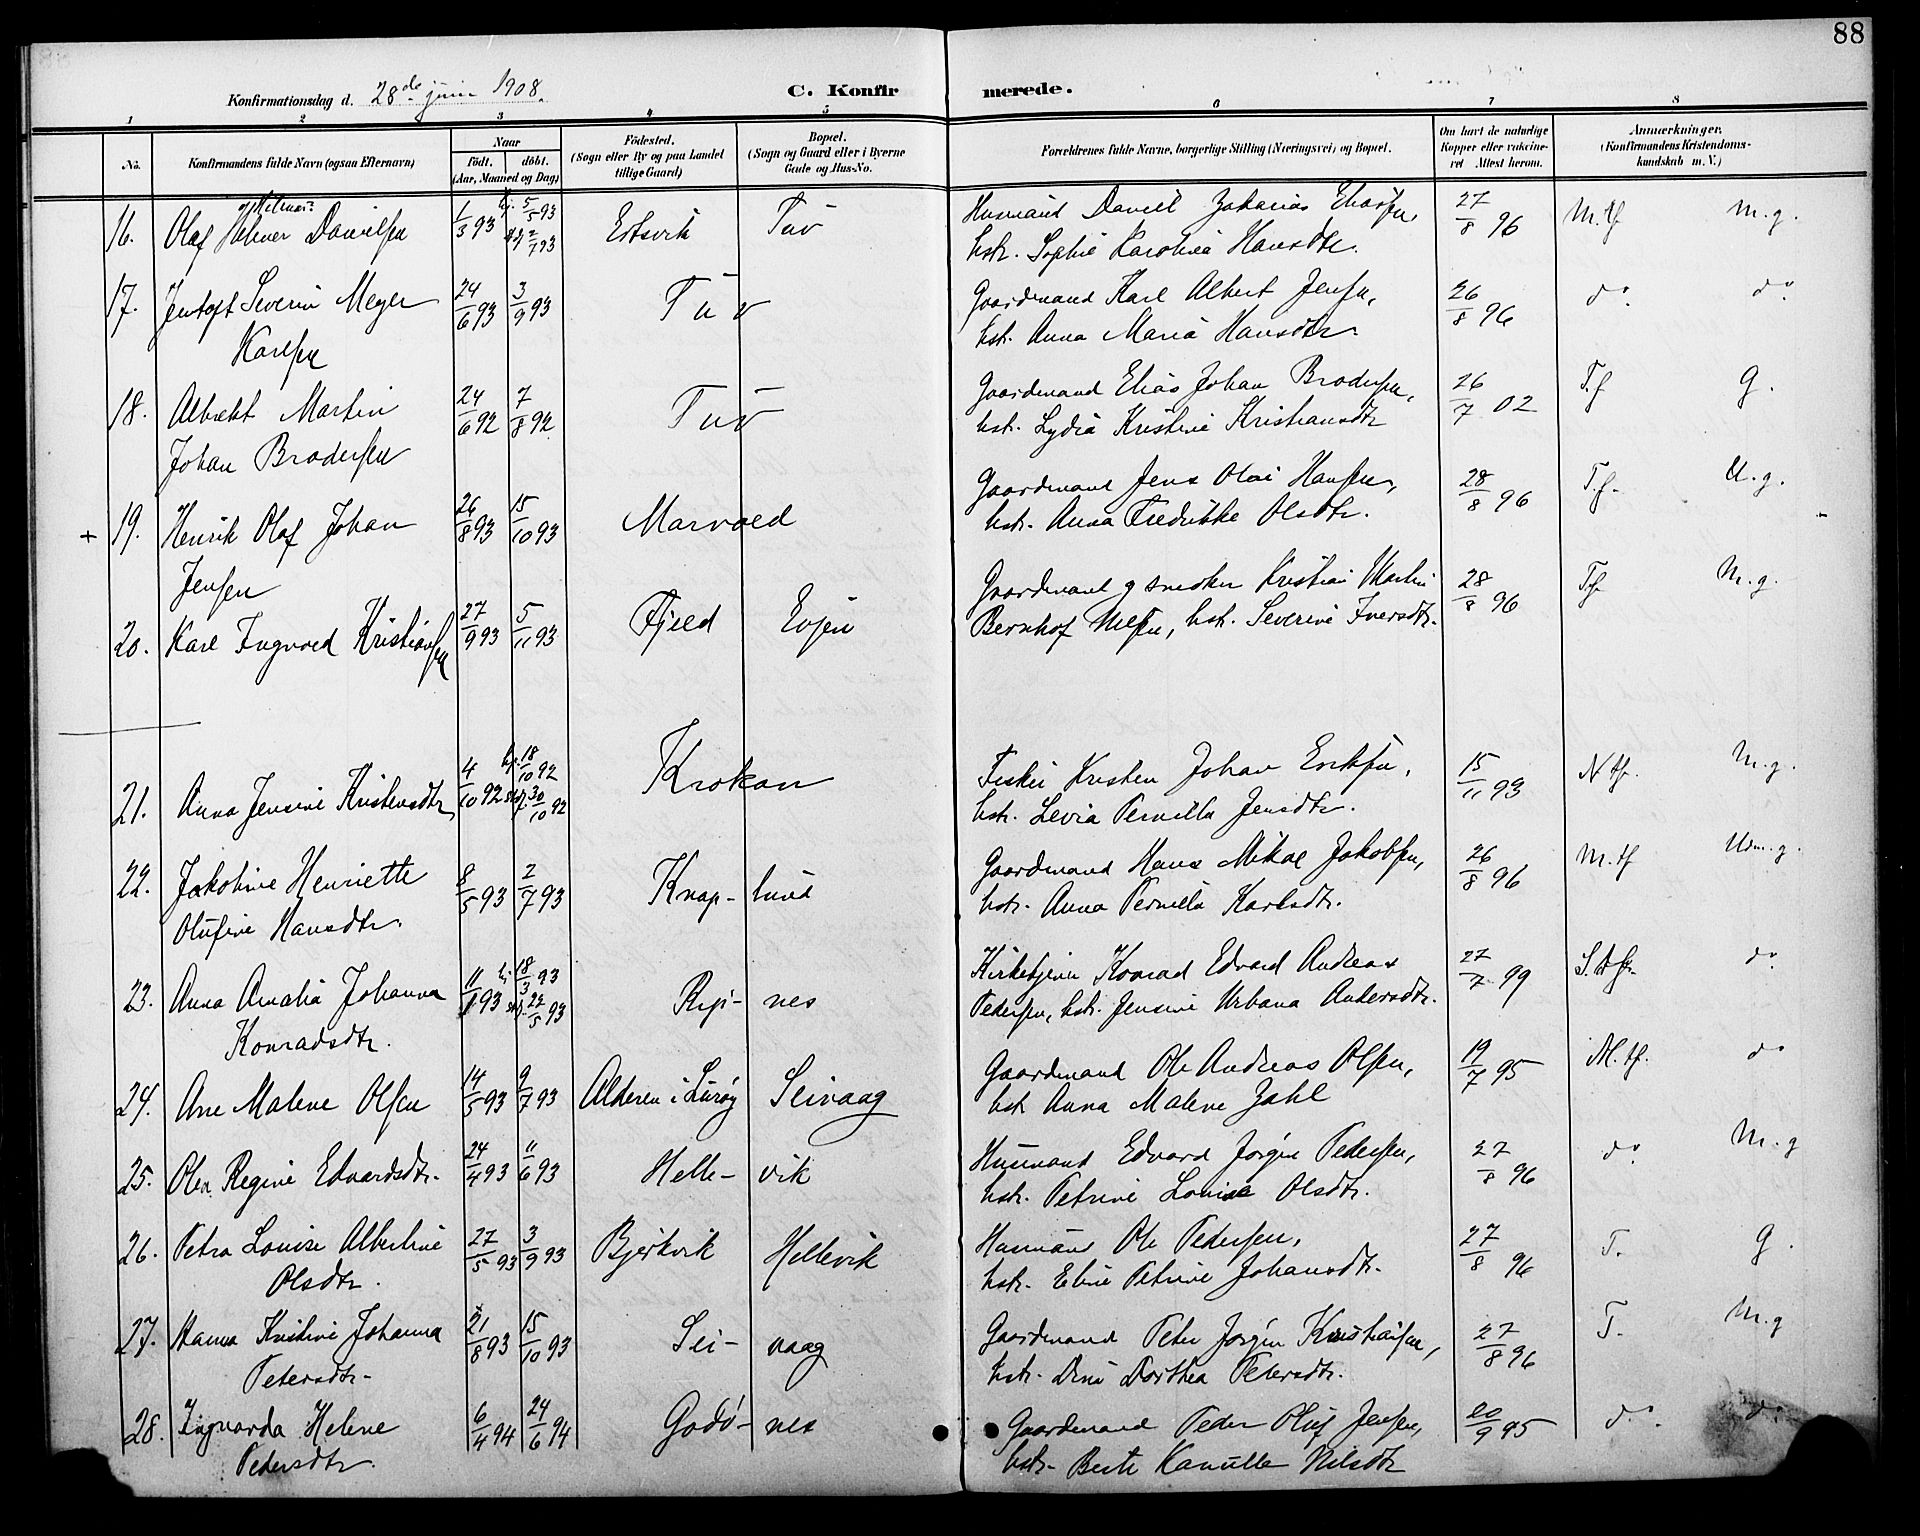 88
Konfirmationsdag d. 28de juni 1908.
C. Konfirmerede.
1 2 3 4 5 6 7 8
No. Konfirmandens fulde Navn (ogsaa Efternavn)
Naar
födt. döbt.
(Aar, Maaned og Dag)
Födested.
(Sogn eller By og paa Landet
tillige Gaard)
Bopæl.
(Sogn og Gaard eller i Byerne
Gade og Hus-No.
Forældrenes fulde Navne, borgerlige Stilling (Næringsvei) og Bopæl.
Om havt de naturlige
Kopper eller vakcineret
Attest herom.
Anmærkninger.
(Konfirmandens Kristendomskundskab
m. V.)
Hilmar
16. Olaf Helmer Danielsen 1/3 93 hj. 5/5 93 Tuv Husmand Daniel Zakarias Eliassen, 27/8 96 M. tf M. g.
2/7 93 hstr. Sophie Karoline Hansdtr.
17. Jentoft Severin Meyer 24/6 93 3/9 93 Tuv Gaardmand Karl Albert Jensen, 26/8 96 do. do.
Karlsen hstr. Anna Maria Hansdtr.
18. Albrekt Martin 24/6 92 7/8 92 Tuv Gaardmand Elias Johan Brodersen, 26/7 02 T.f G.
Johan Brodersen hstr. Lydia Kristine Kristiansdtr
+ 19. Henrik Olaf Johan 26/8 93 15/10 93 Marvold Gaardmand Jens Olai Hansen, 28/8 96 T.f. M. g.
Jensen hstr. Anna Fredrikke Olsdtr.
20. Karl Ingvold Kristiansen 27/9 93 5/11 93 Fjeld Evjen Gaardmand og snedker Kristian Martin 28/8 96 Tf M. g.
Bernhof Nilsen, hstr. Severine Iversdtr.
21. Anna Jensine Kristensdtr 4/10 92 hj. 18/10 92 Krokan Fisker Kristen Johan Eriksen, 15/11 93 N tf. M. g.
stf. 30/10 92 hstr. Levia Pernilla Jensdtr.
22. Jakobine Henriette 8/5 93 2/7 93 Knaplund Gaardmand Hans Mikal Jakobsen, 26/8 96 M. tf Um. g.
Olufine Hansdtr. hstr. Anna Pernilla Karlsdtr.
23. Anna Amalia Johanna 11/1 93 hj. 18/3 93 Ripnes Kirketjener Konrad Edvard Andreas 27/7 99 S. tf. do.
Konradsdtr. stf. 22/5 93 Pedersen, hstr. Jensine Urbana Andersdtr.
24. Ane Malene Olsen 14/5 93 9/7 93 Alderen i Lurøy Seivaag Gaardmand Ole Andreas Olsen, 19/7 95 M. tf. do
hstr Anna Malene Zahl
25. Olea Regine Edvardsdtr. 24/4 93 11/6 93 Hellevik Husmand Edvard Jørgen Pedersen, 27/8 96 do. M. g
hstr. Petrine Louise Olsdtr.
26. Petra Louise Albertine 27/5 93 3/9 93 Bjerkvik Hellevik Husmand Ole Pedersen, 27/8 96 T. G.
Olsdtr. hstr. Eline Petrine Johansdtr.
27. Hanna Kristine Johanna 21/8 93 15/10 93 Seivaag Gaardmand Peter Jørgen Kristiansen, 27/8 96 T. M. g
Petersdtr. hstr. Dina Dorthea Petersdtr.
28. Ingvarda Helene 6/4 94 24/6 94 Godønes Gaardmand Peder Oluf Jensen, 20/9 95 do. do.
Pedersdtr. hstr. Berte Kanutte Nilsdtr